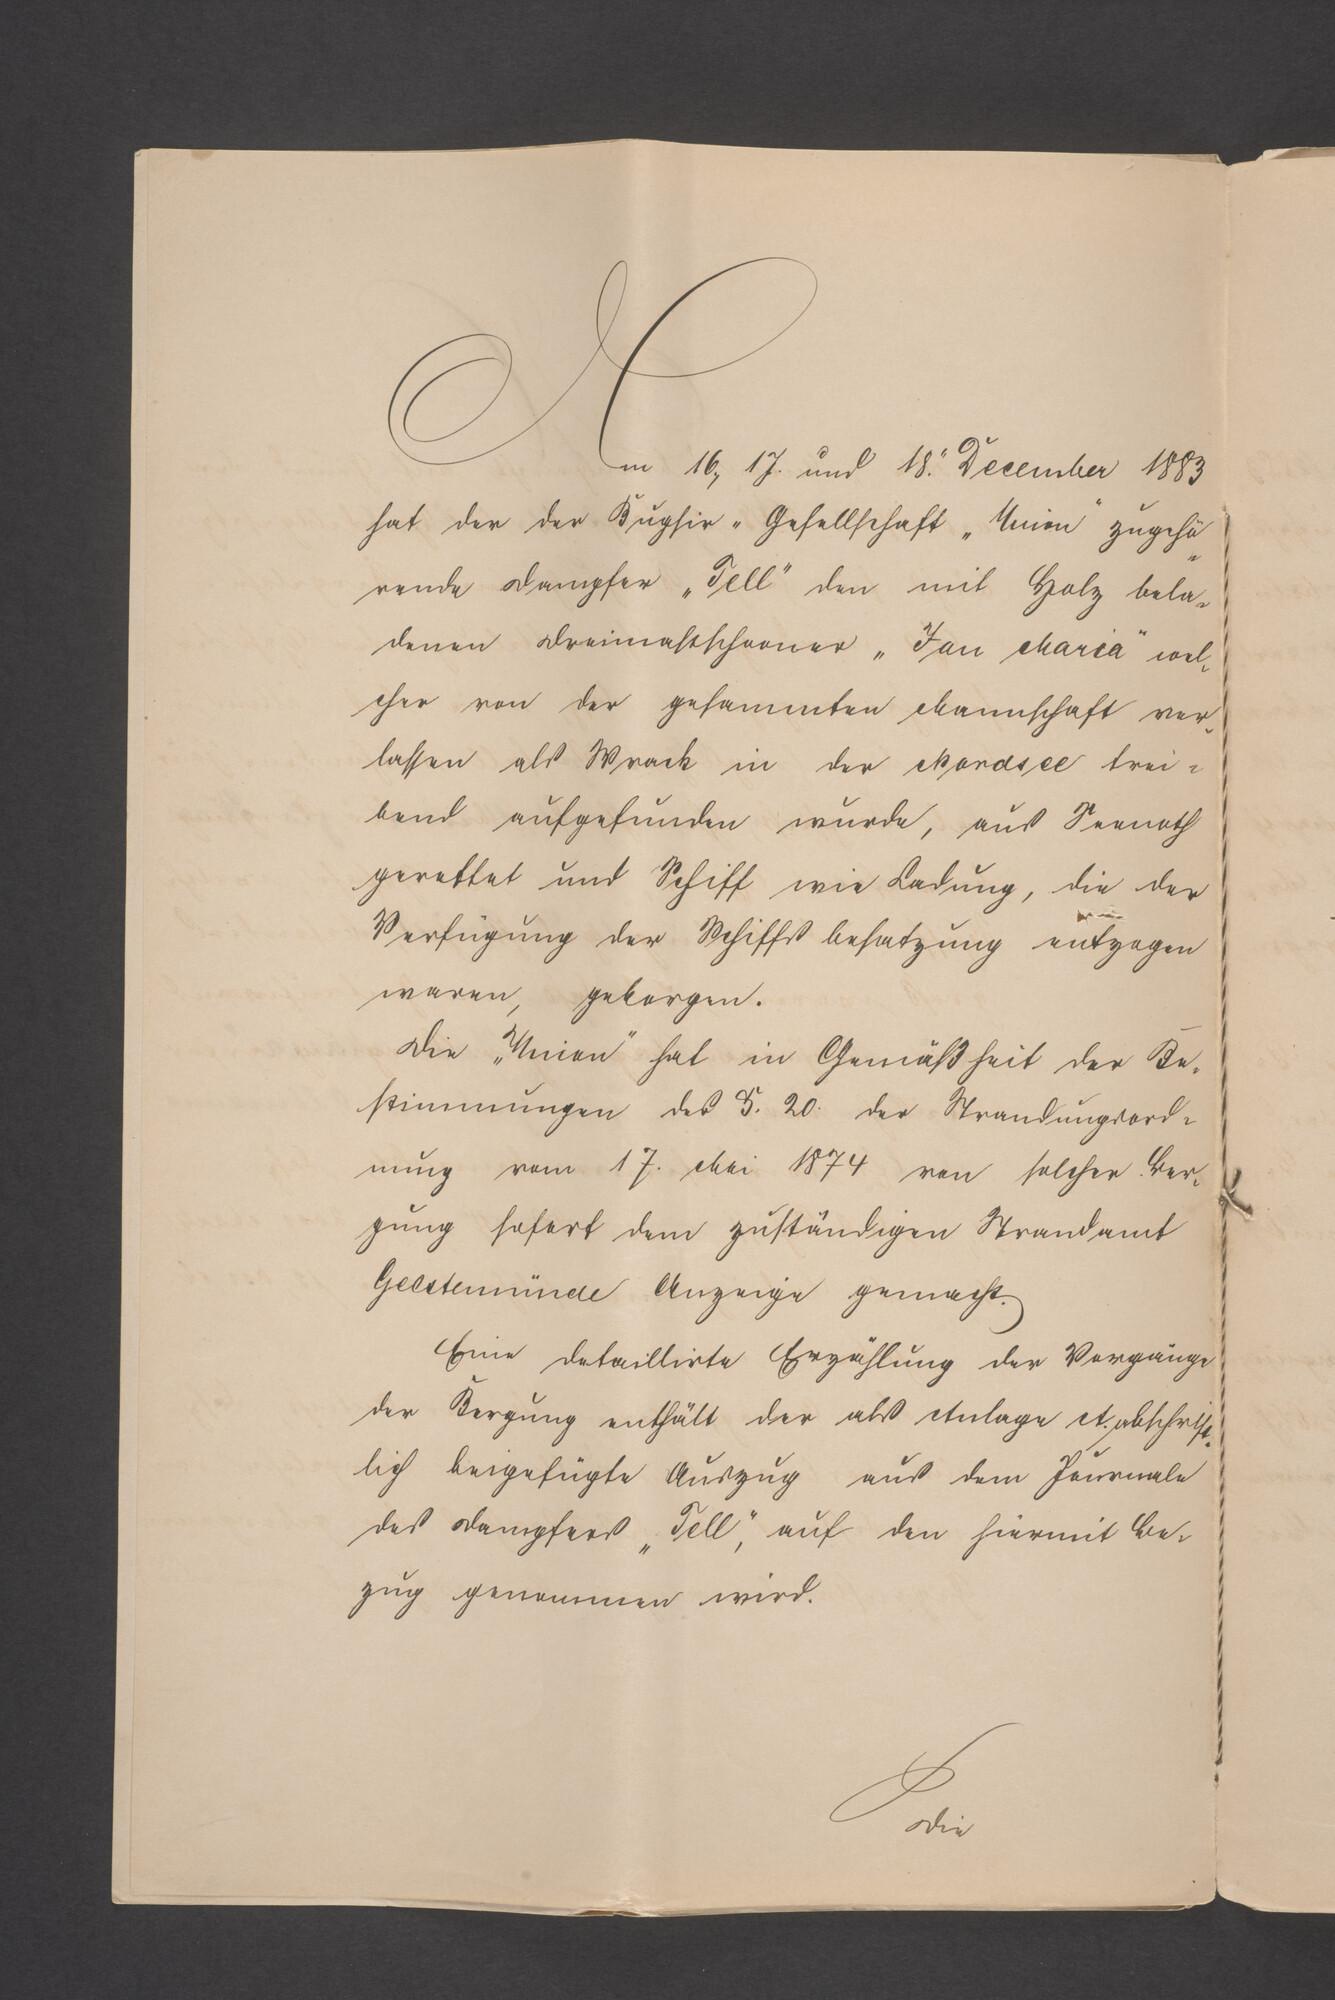 Am 16., 17. und 18. December 1883
hat der der Bugsir-Gesellschaft „Union" zugehö-
rende Dampfer „Tell" den mit Holz bela-
denen Dreimastschooner „Jan Maria" wel-
cher von der gesammten Mannschaft ver-
lassen als Wrack in der Nordsee trei-
bend aufgefunden wurde, aus Seenoth
gerettet und Schiff wie Ladung, die der
Verfügung der Schiffsbesatzung entzogen
waren, geborgen.
Die „Union" hat in Gemäßheit der Be-
stimmungen des §. 20. der Strandungsord-
nung vom 17. Mai 1874 von solcher Ber-
gung sofort dem zuständigen Strandamt
Geestemünde Anzeige gemacht.
Eine detaillirte Erzählung der Vorgänge
der Bergung enthält der als Anlage A. abschrift-
lich beigefügte Auszug aus dem Journale
des Dampfers „Tell", auf den hiermit Be-
zug genommen wird.
Die